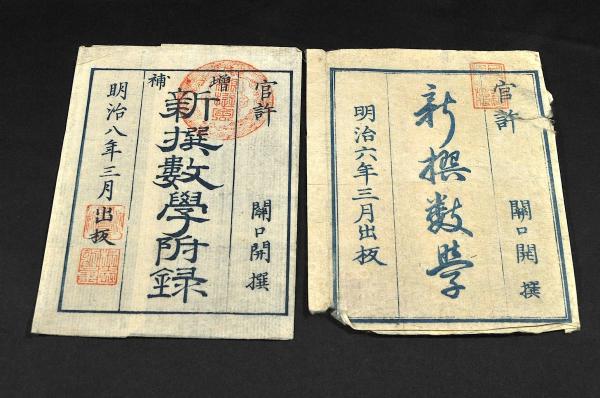 官許 關口開 撰
新撰数学
明治六年三月出板
官許 關口開 撰
增補
新撰數學附錄
明治八年三月出板